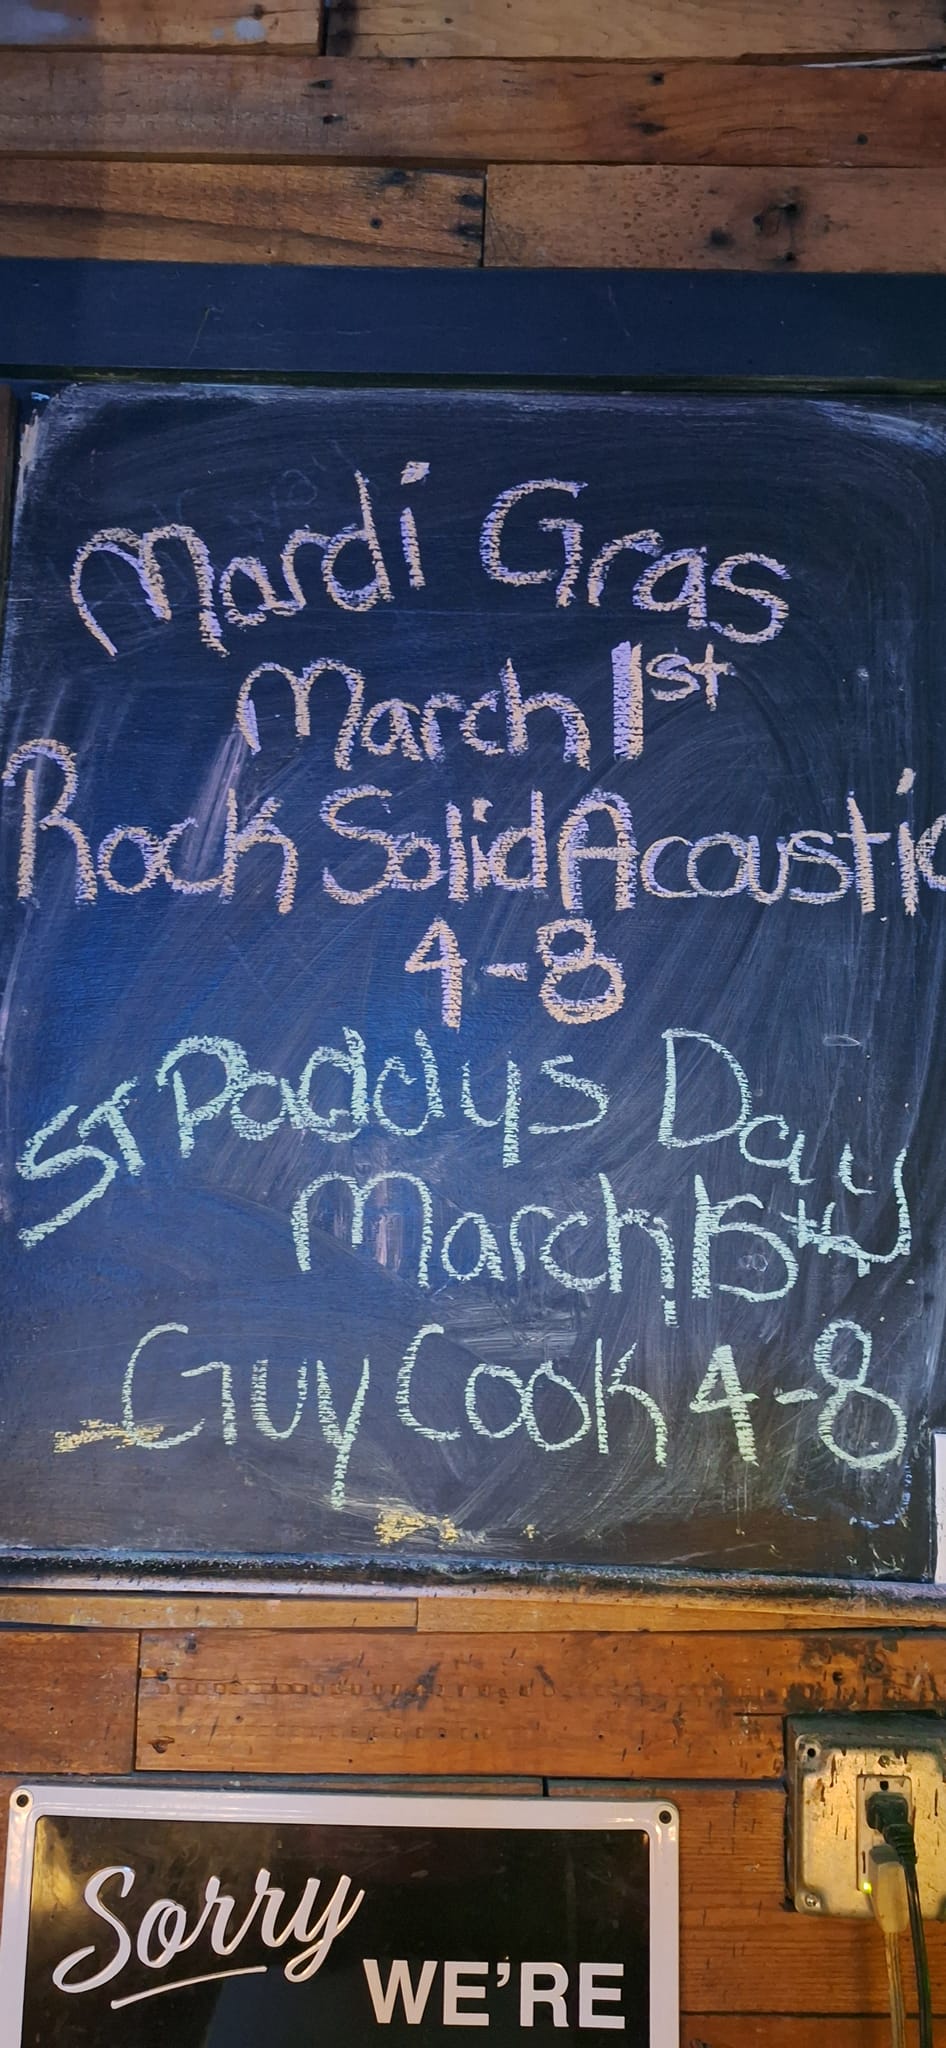 Mardi Gras
March 1st
Rock Solid Acoustic
4-8
ST Paddys Day
March 15th
Guy Cook 4-8
Sorry
WE'RE